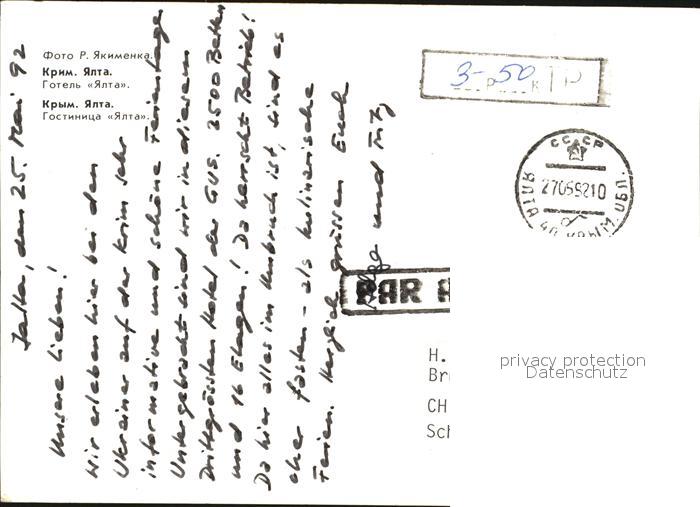 Фото Р. Якименка.
Крим. Ялта.
Готель «Ялта».
Крым. Ялта.
Гостиница «Ялта».
Jalta, den 25. Mai 92
Unsere Lieben!
Wir erleben hier bei den
Ukrainer auf der Krim sehr
informative und schöne Ferientage.
Untergebracht sind wir in diesem
Drittgrössten Hotel der GUS. 2500 Betten
und 16 Etagen! Da herrscht Betrieb!
Da hier alles im Umbruch ist, sind es
eher fasten- als kulinarische
Ferien. Herzlich grüssen Euch
und Fritz
3-50
р к
СССР
ЯЛТА
27059210
КРЫМ. ОБЛ.
PAR A
H.
Br
CH
Sch
privacy protection
Datenschutz